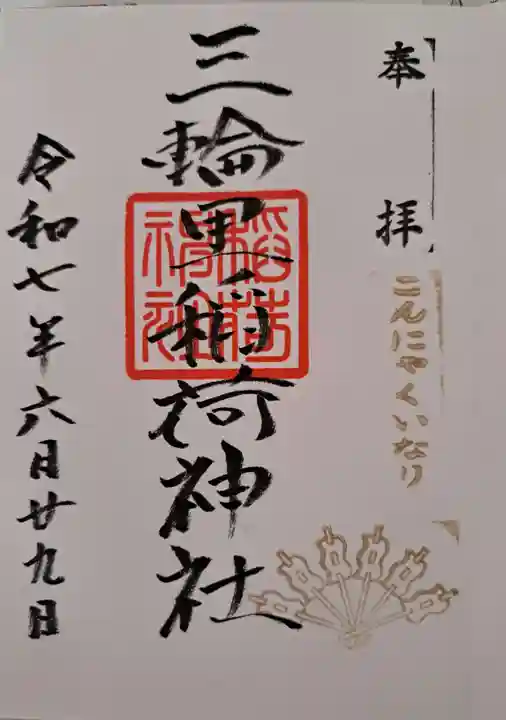 奉拝
こんにゃくいなり
三輪里稲荷神社
稲荷
神社
令和七年六月廿九日